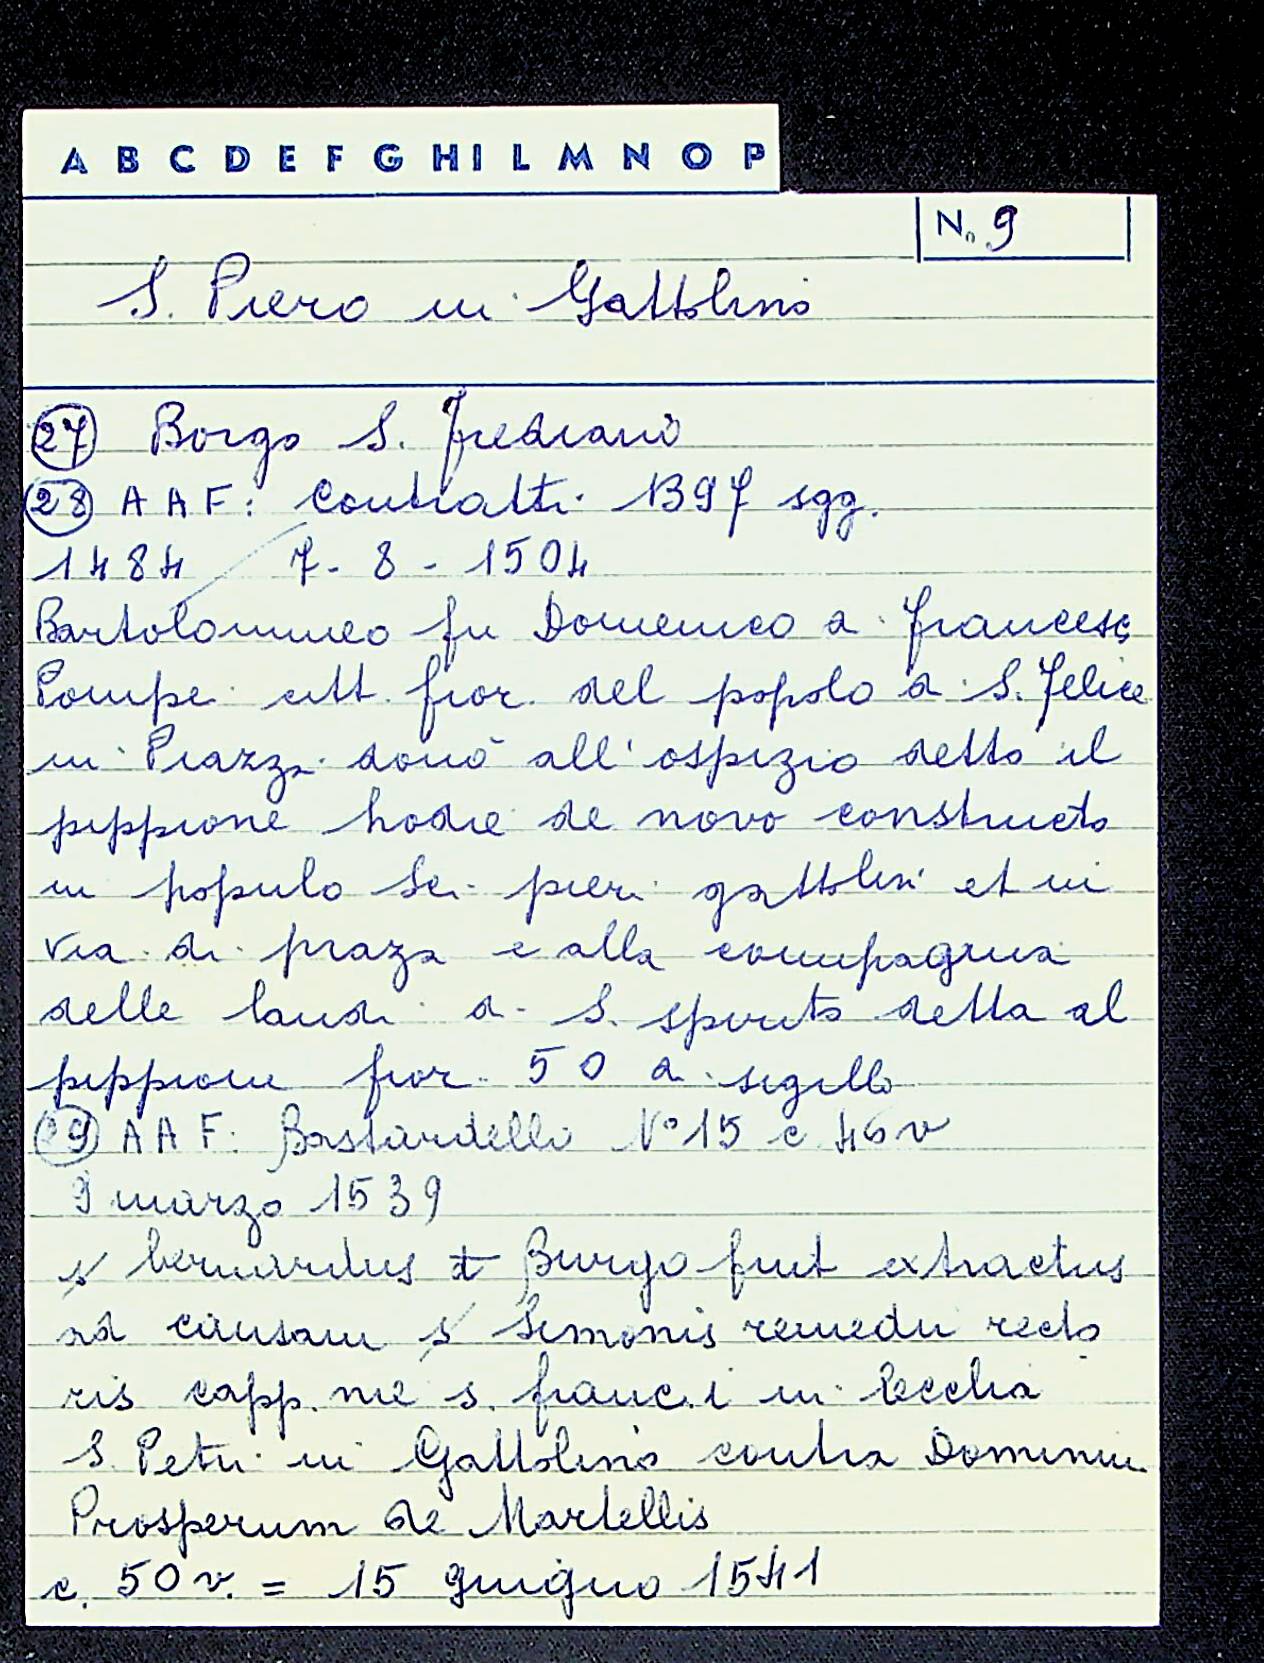 A B C D E F G H I L M N O P
N. 9
S. Piero in Gattolino
27 Borgo S. Frediano
28 A A F: Contratti 1397 sgg.
1484 7 - 8 - 1504
Bartolommeo fu Domenico di Francesc
Pompei citt. fior. del popolo di S. Felice
in Piazza donò all'ospizio detto il
pippione hodie de novo constructo
in populo Sci pieri gattolini et in
via di piaza e alla compagnia
delle laudi di S. spirito detta al
pippione fior. 50 di sigillo
29 A A F: Bastardello N° 15 c 46 v
9 marzo 1539
s/ bernardus Burgo fuit extractus
ad causam s/ Simonis remedii recto
ris capp. nie s. franc.i in Ecclia
S. Petri in Gattolino contra Dominum
Prosperum de Martellis
c. 50 v. = 15 giugno 1541